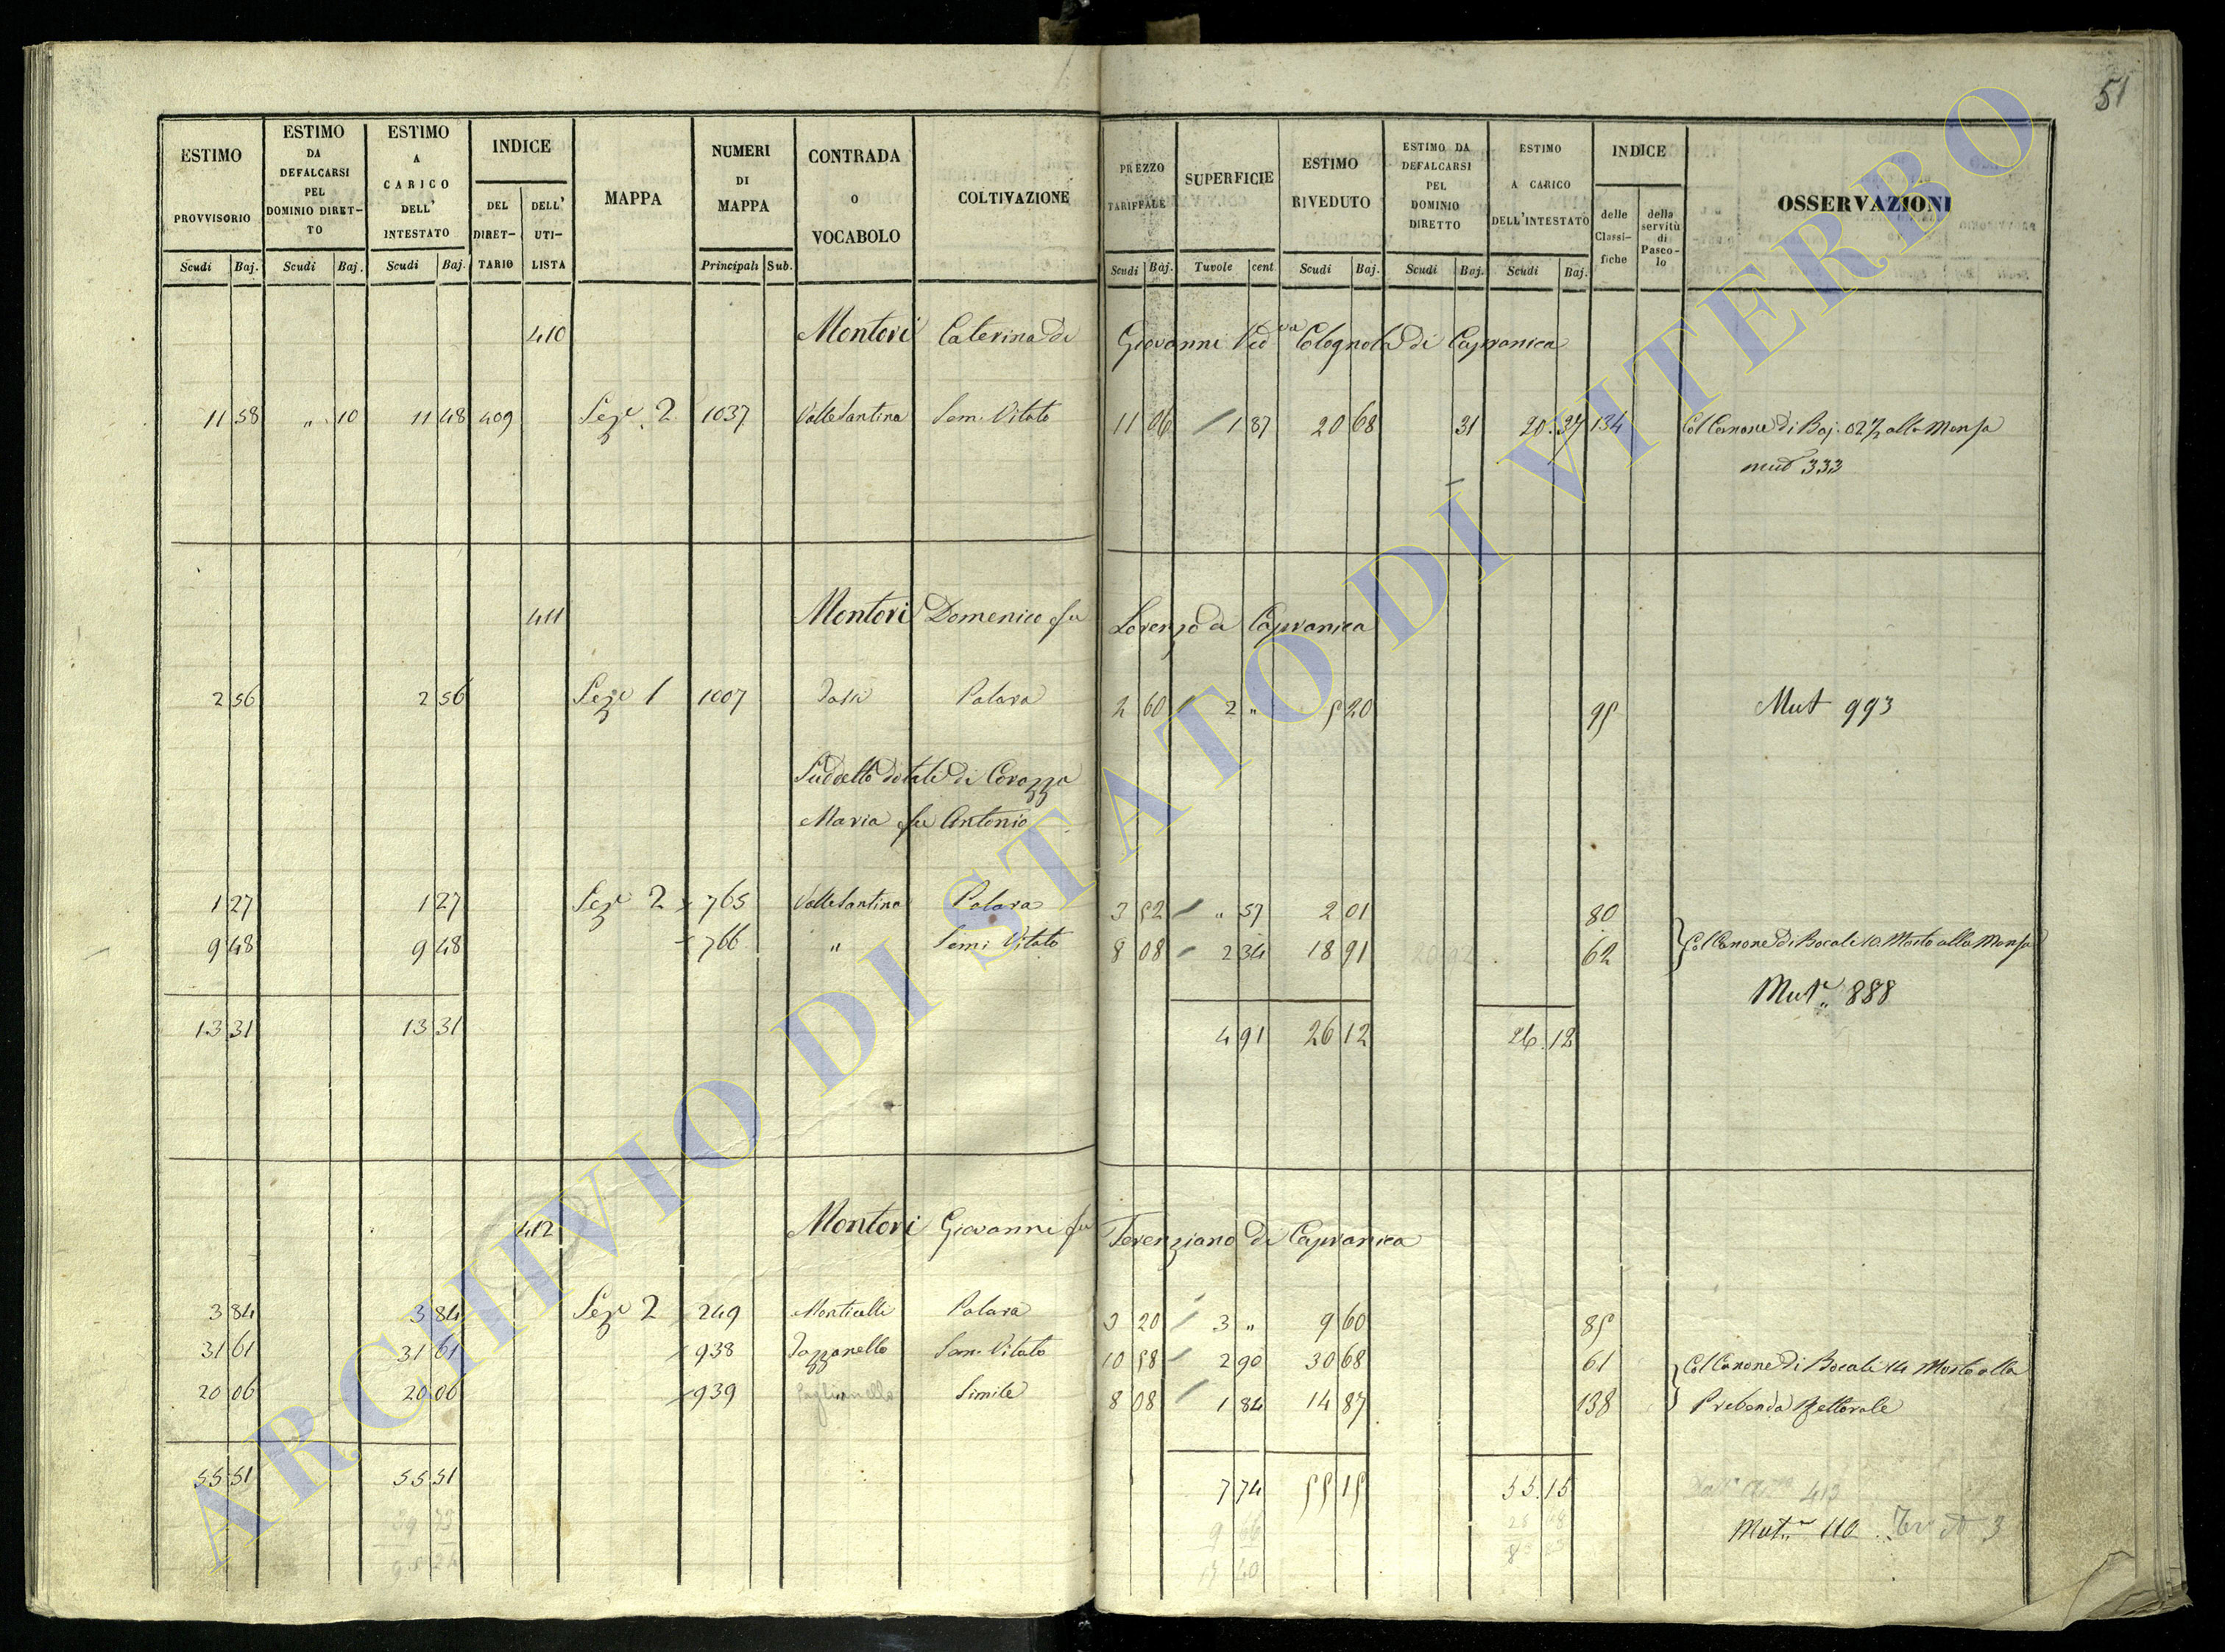 51
ESTIMO PROVVISORIO Scudi Baj.
ESTIMO DA DEFALCARSI PEL DOMINIO DIRET- TO Scudi Baj.
ESTIMO A CARICO DELL' INTESTATO Scudi Baj.
INDICE DEL DIRET- TARIO DELL' UTI- LISTA
MAPPA
NUMERI DI MAPPA Principali Sub.
CONTRADA O VOCABOLO
COLTIVAZIONE
PREZZO TARIFFALE Scudi Baj.
SUPERFICIE Tavole cent
ESTIMO RIVEDUTO Scudi Baj.
ESTIMO DA DEFALCARSI PEL DOMINIO DIRETTO Scudi Baj.
ESTIMO A CARICO DELL'INTESTATO Scudi Baj.
INDICE delle Classi- fiche della servitù di Pasco- lo
OSSERVAZIONI
410 Montori Caterina di Giovanni Ved.va Colognola di Capranica
11 58 " 10 11 48 409 Seze 2 1037 Valle Santina Sem. Vitato 11 06 1 87 20 68 31 20.37 134 Col Canone di Baj. 02½ alla Mensa
mut 333
411 Montori Domenico fu Lorenzo di Capranica
2 56 2 56 Seze 1 1007 Palara 2 60 2 " 5 20 95 Mut 993
Suddetto dotale di Corazza
Maria fu Antonio
1 27 1 27 Seze 2 765 Valle Santina Palara 3 52 " 57 2 01 80
9 48 9 48 766 " Semi Vitato 8 08 2 34 18 91 62 Col Canone di Bocali 10. Mosto alla Mensa
Mut.e 888
13 31 13 31 4 91 26 12 26.12
412 Montori Giovanni fu Terenziano di Capranica
3 84 3 84 Seze 2 249 Monticelli Palara 3 20 3 " 9 60 85
31 61 31 61 938 Pazzanello Sem. Vitato 10 58 2 90 30 68 61 Col Canone di Bocali 14 Mosto alla
20 06 20 06 939 Simile 8 08 1 84 14 87 138 Prebenda Rettorale
55 51 55 51 7 74 55 15 55.15
413
Mut.e 110 3
ARCHIVIO DI STATO DI VITERBO